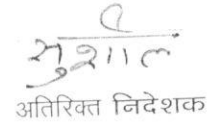 सुशील
अतिरिक्त निदेशक